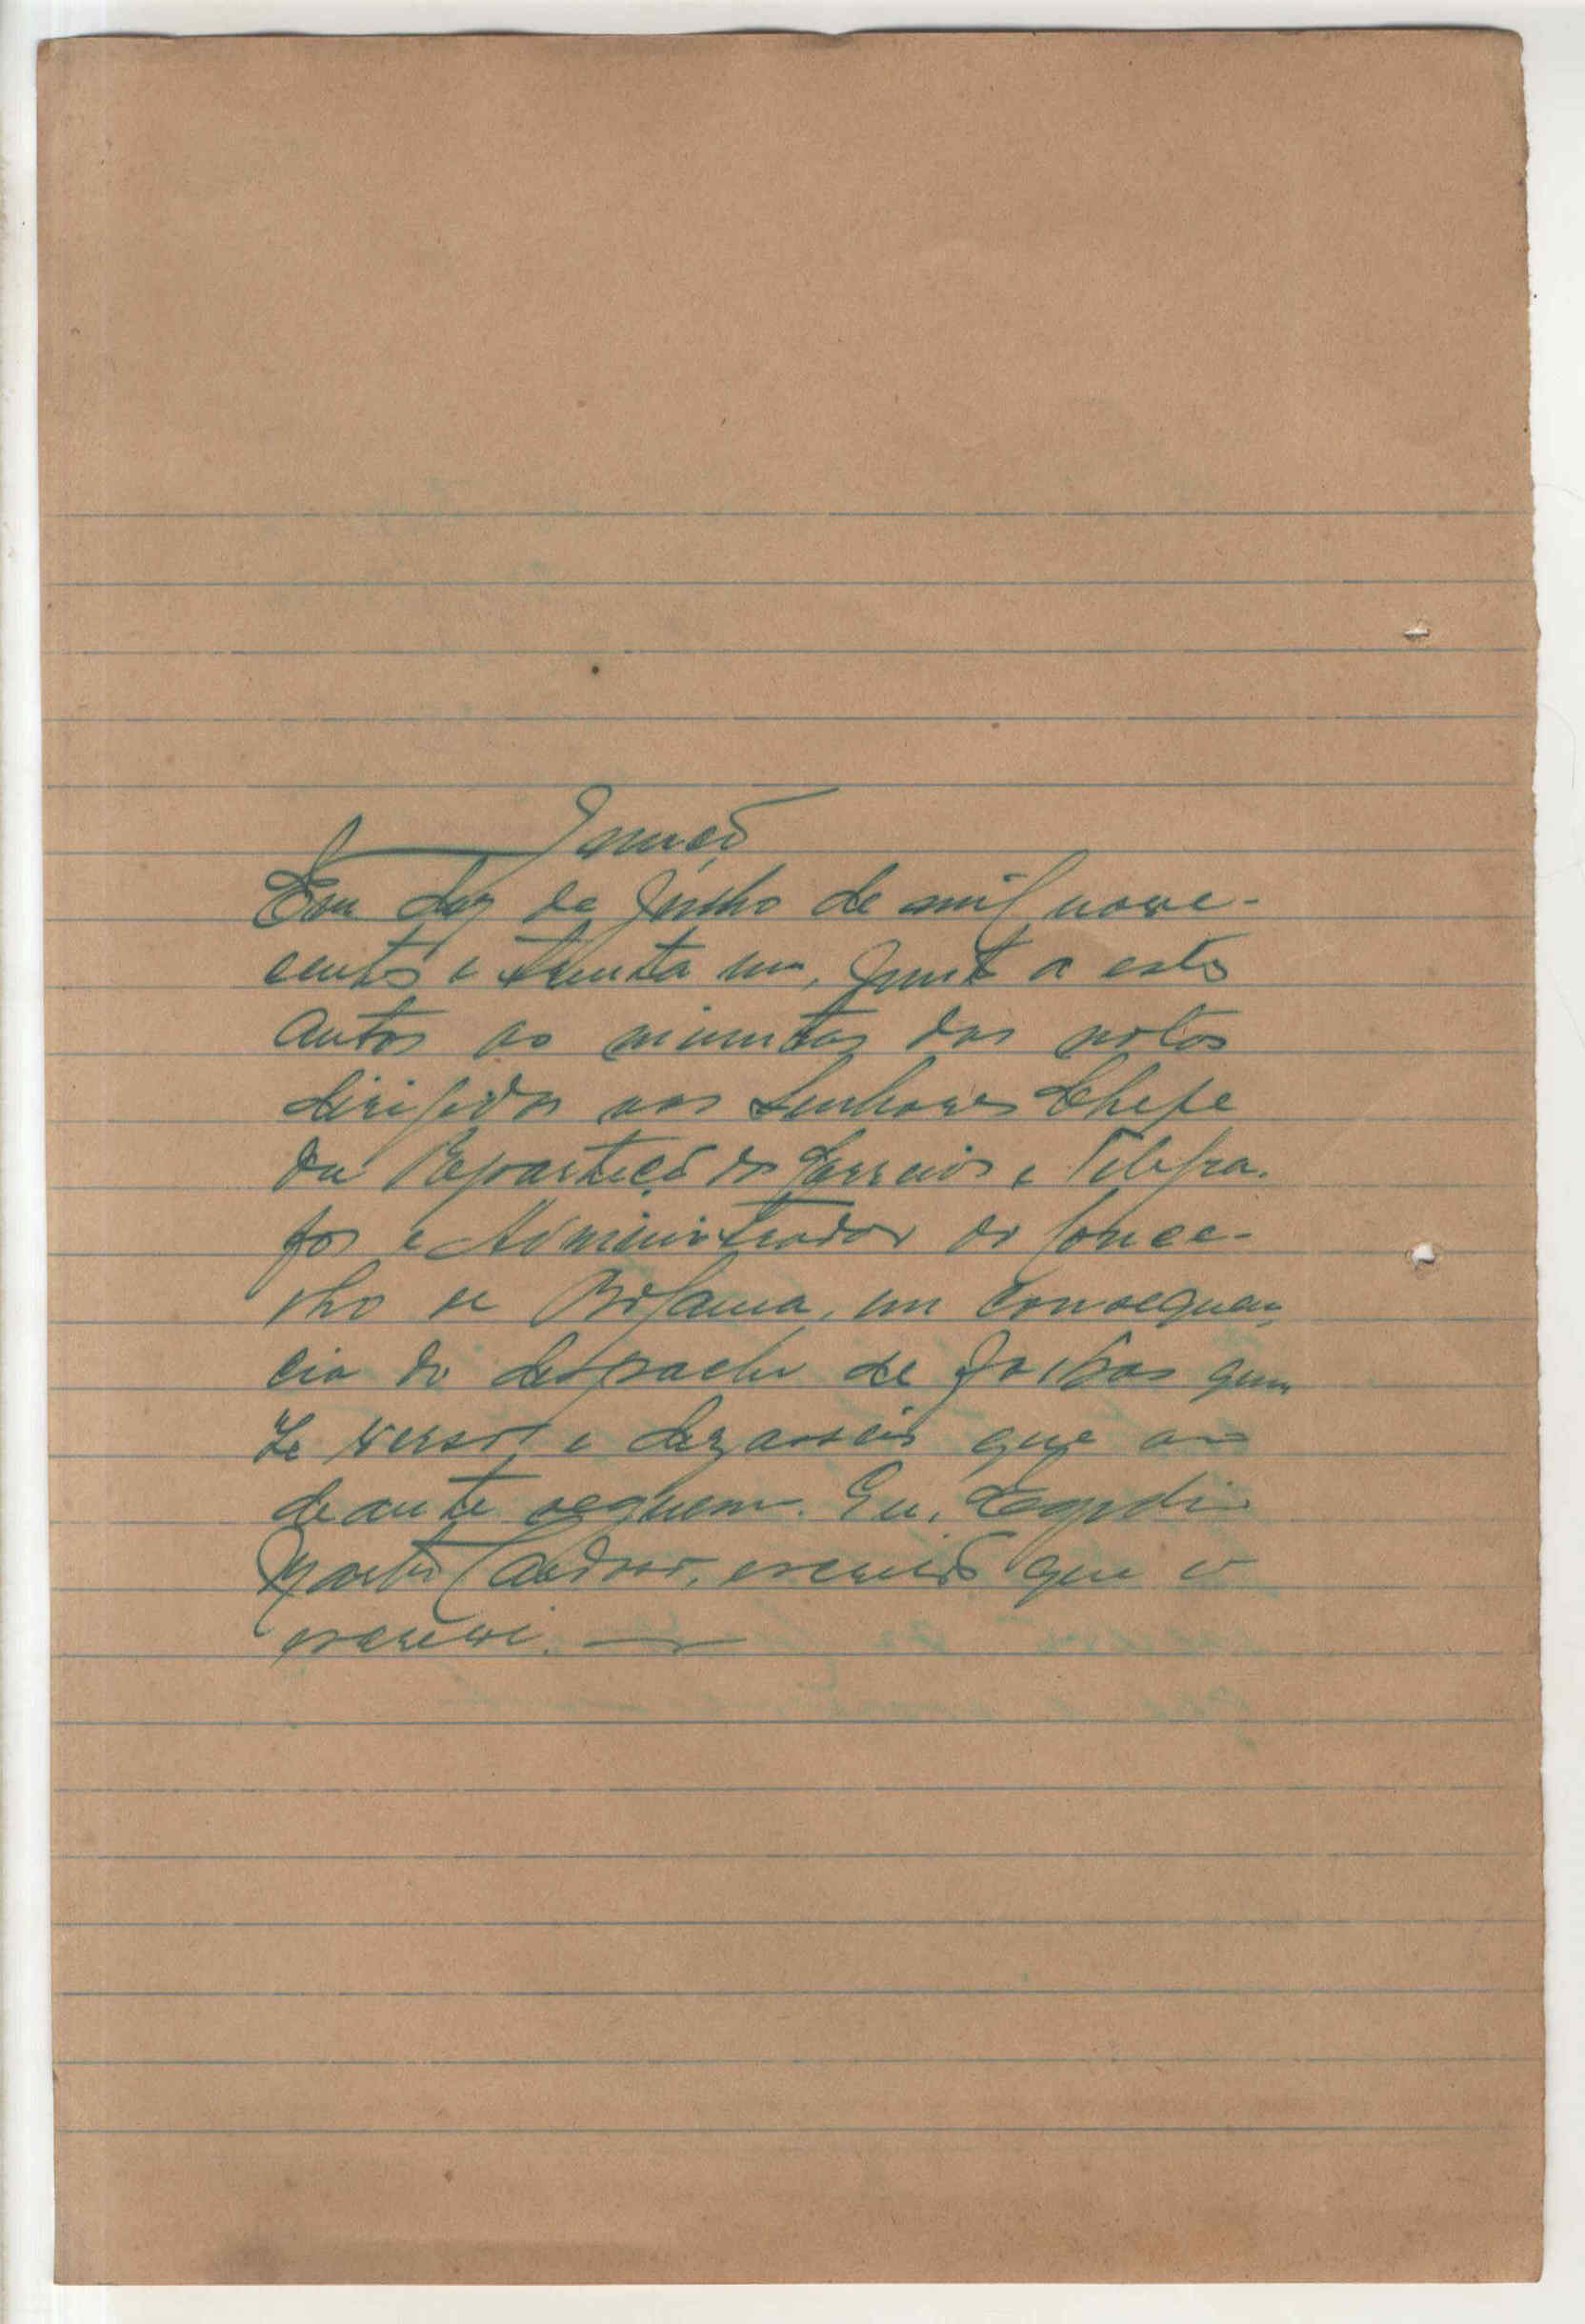 Junção
Em dez de Junho de mil nove-
centos e trinta um, junto a estes
autos as minutas das notas
dirigidas aos Senhores Chefe
da Repartição dos Correios e Telegra-
fos e Administrador do Conce-
lho de Bolama, em consequen-
cia do despacho de folhas quin-
ze verso e dezasseis que ao
deante seguem. Eu,
Cardoso, escrivão que o
escrevi.